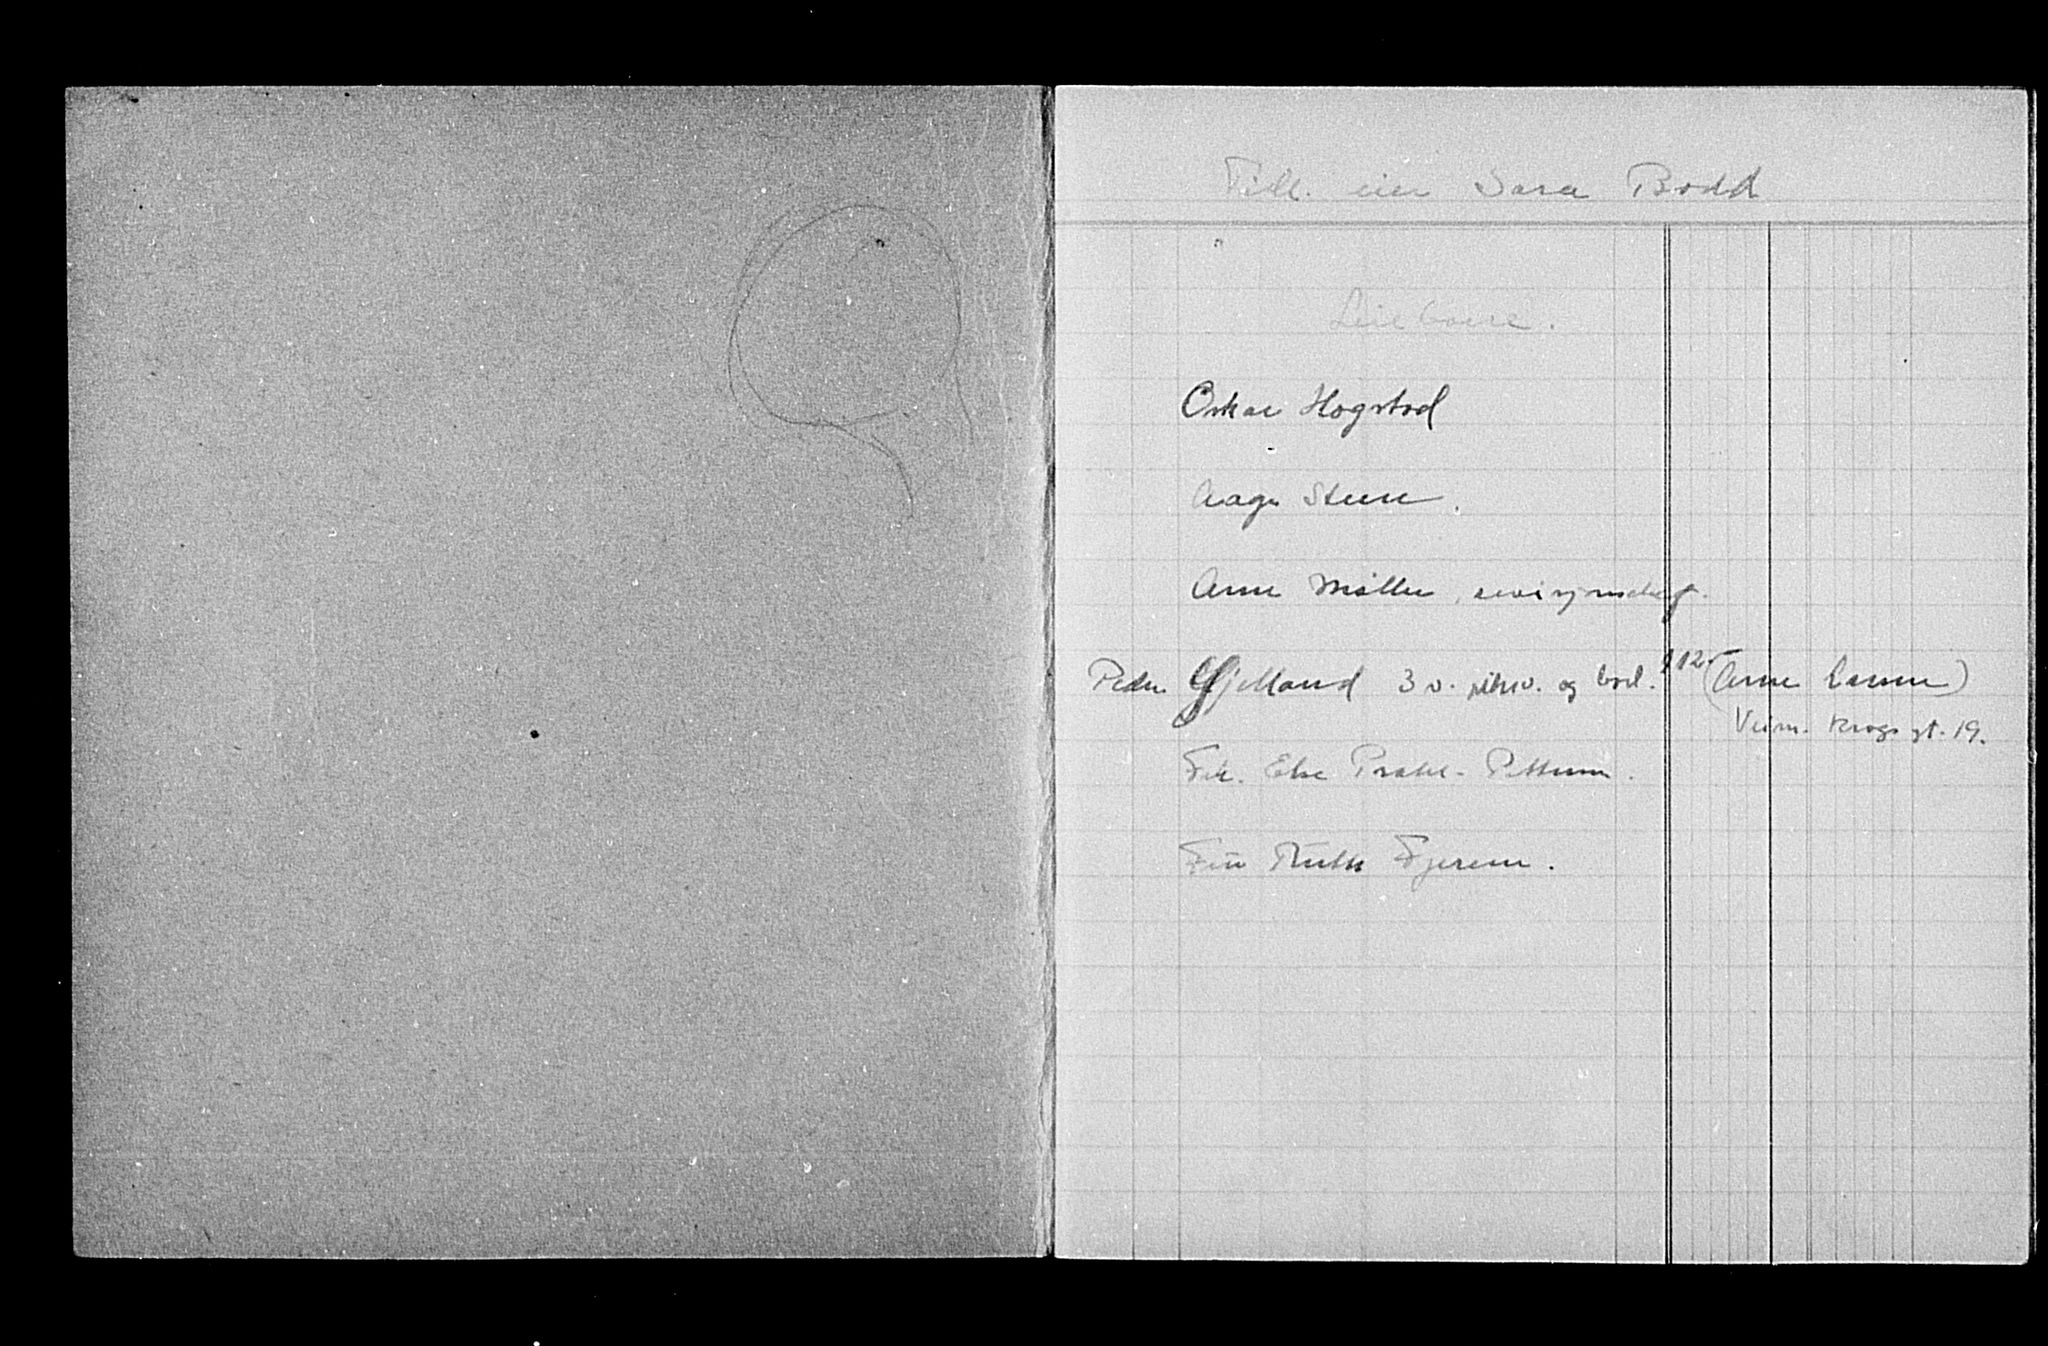 Tidl. eier Sara Bodd
Leieboere.
Oskar Hogstad
Aage Steen.
Arne Møller, revisjonschef.
Peder Gjelland 3 v. pikev. og bad. 112.- (Arne Larsen)
Veim. Krogs gt. 19.
Frk. Else Prahl-Pettersen.
Fru Ruth Fjersem.